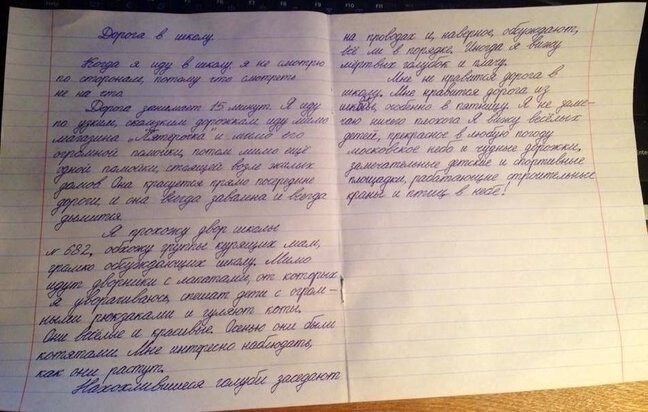 Дорога в школу.
Когда я иду в школу я не смотрю
по сторонам, потому что смотреть
не на что.
Дорога занимает 15 минут. Я иду
по узким, скользким дорожкам иду мимо
магазина „Пятёрочка" и мимо его
огромной помойки, потом мимо ещё
одной помойки, стоящей возле жилых
домов. Она красуется прямо посередине
дороги и она всегда завалина и всегда
дымится.
Я прохожу двор школы
№ 682, обхожу группы курящих мам,
громко обсуждающих школу. Мимо
идут дворники с лопатами, от которых
я уворагиваюсь, спешат дети с огром-
ными рюкзаками и гуляют коты.
Они весёлые и красивые. Осенью они были
котятами. Мне интересно наблюдать,
как они растут.
Нахохлившиеся голуби заседают
на проводах и, наверное, обсуждают,
всё ли в порядке. Иногда я вижу
мёртвых голубок и плачу.
Мне не нравится дорога в
школу. Мне нравится дорога из
школы, особенно в пятницу. Я не заме-
чаю ничего плохого Я вижу весёлых
детей, прекрасное в любую погоду
московское небо и чудные дорожки,
замечательные детские и спортивные
площадки, работающие строительные
краны и птиц в небе!